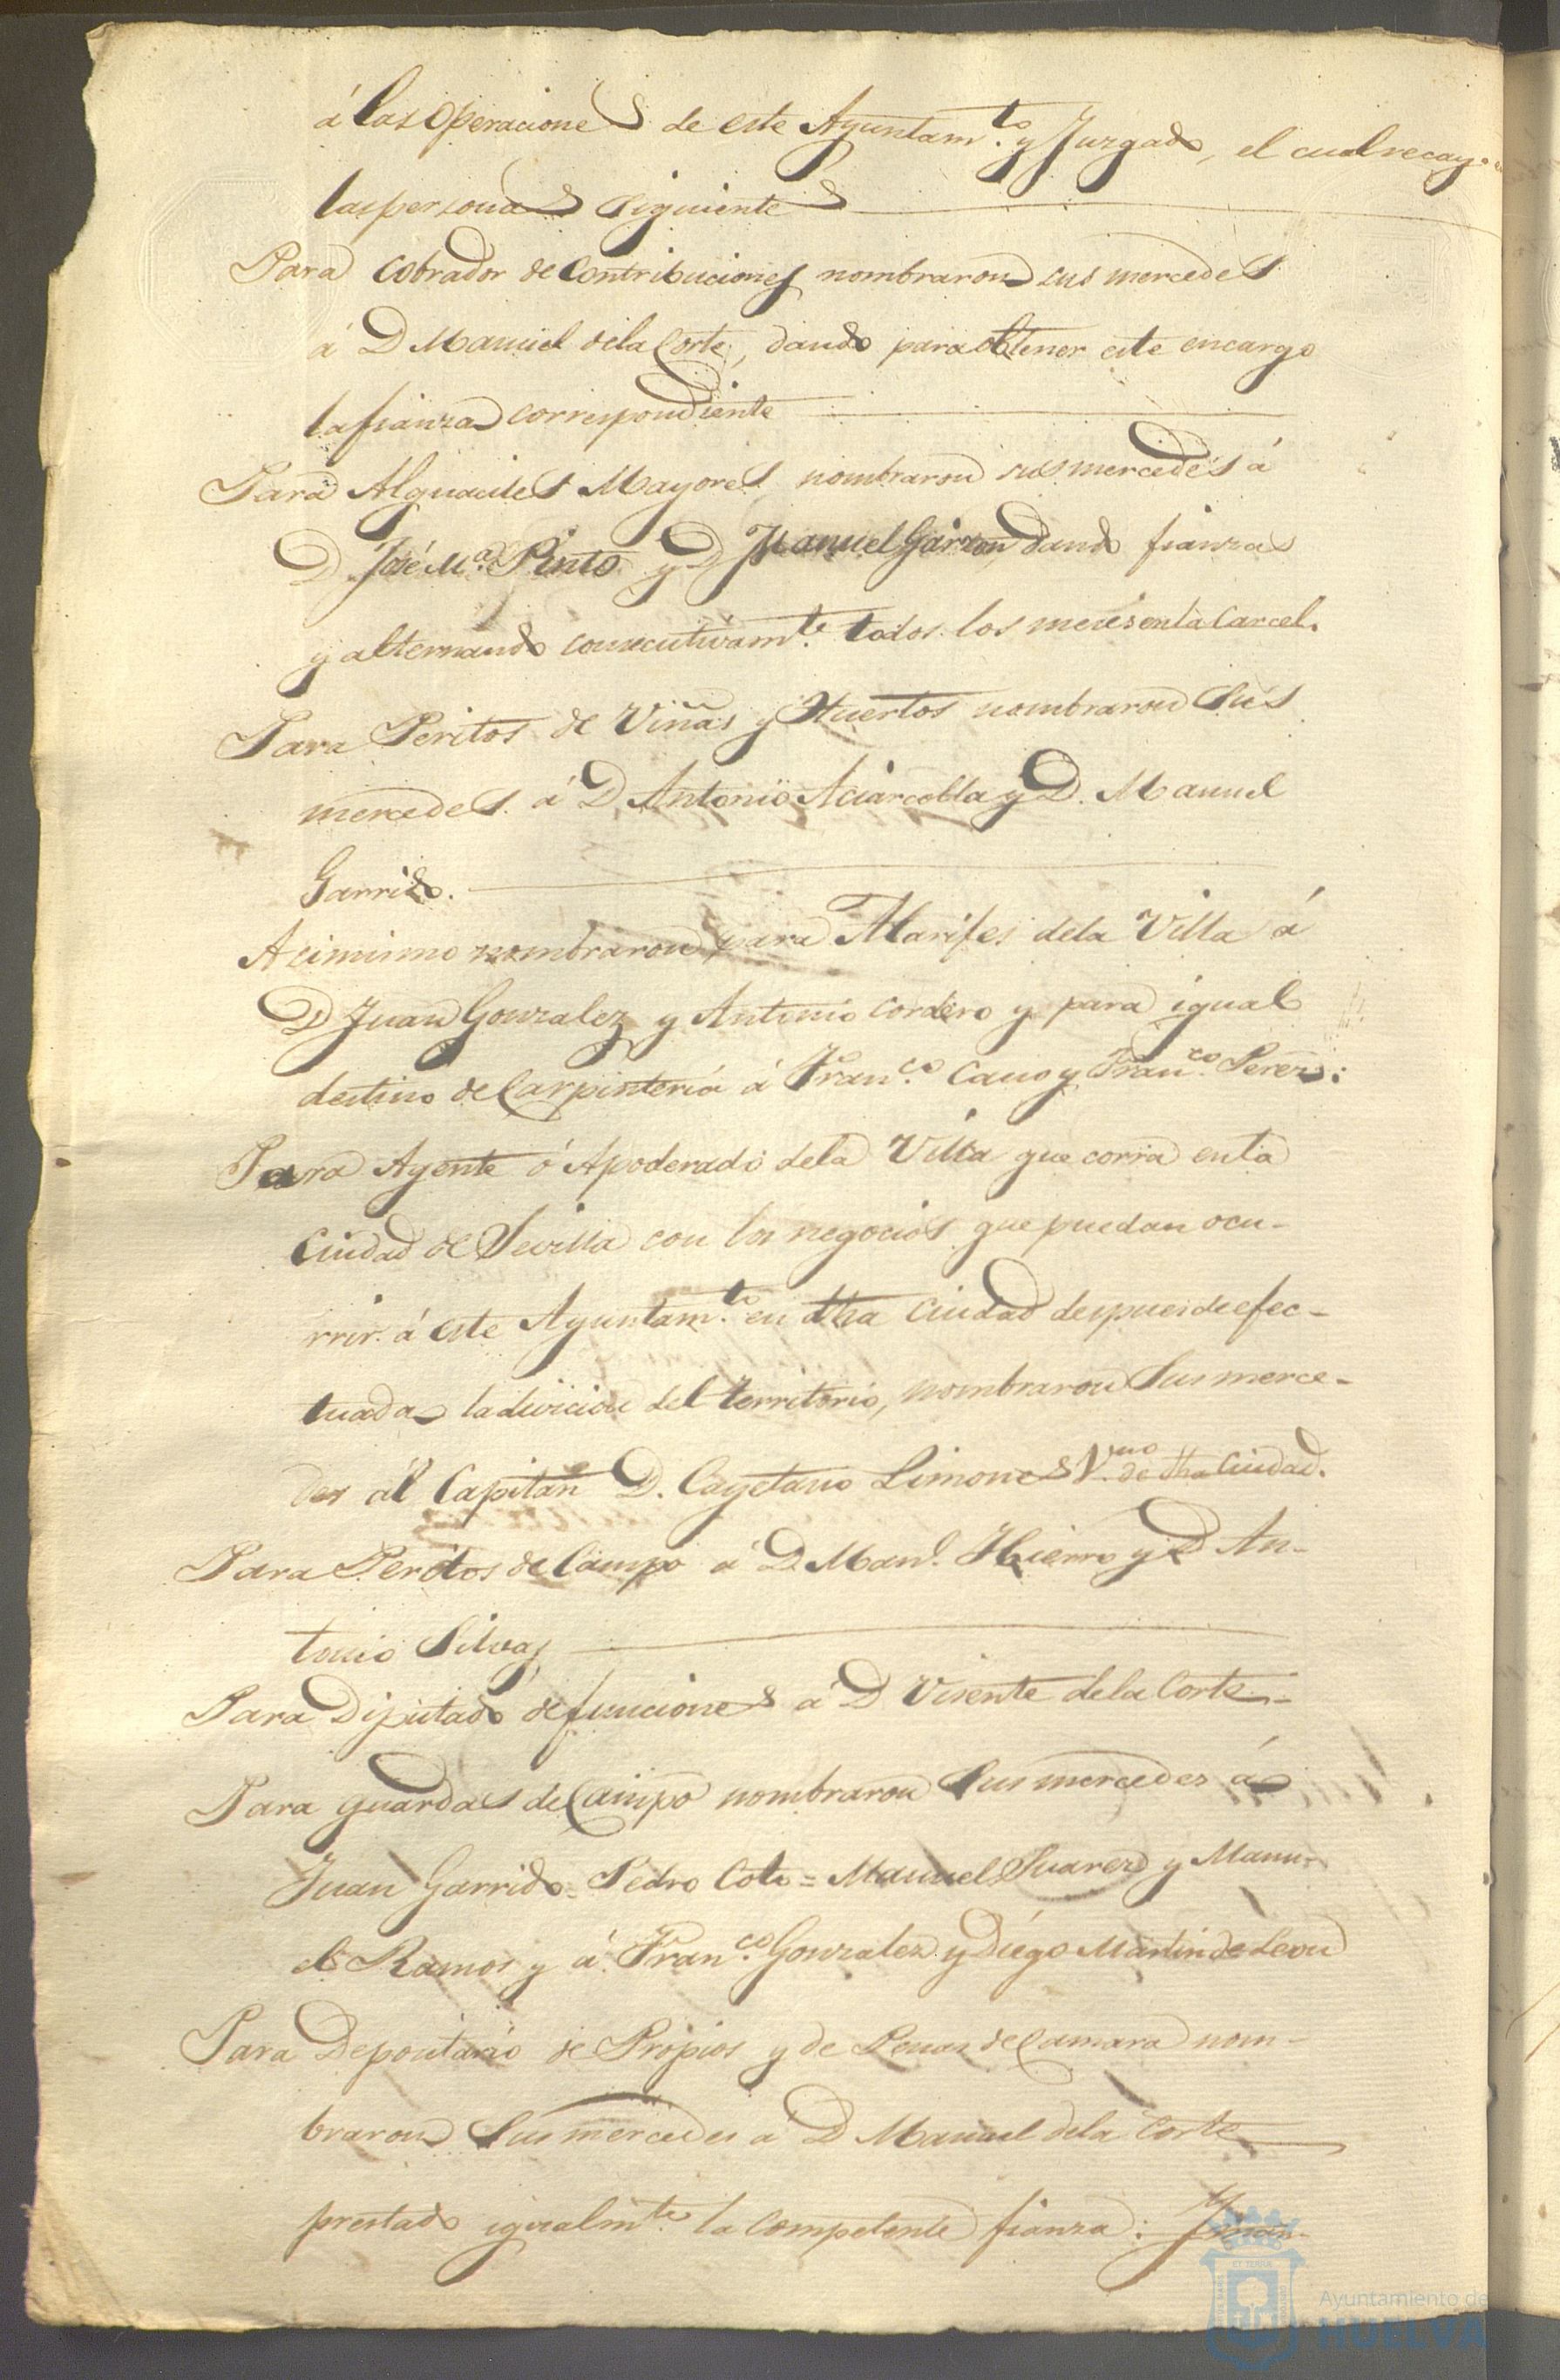 á las Operaciones de este Ayuntam.to y Juzgado, el cual recay
las personas siguientes
Para Cobrador de Contribuciones nombraron sus mercedes
á D Manuel de la Corte, dando para obtener este encargo
la fianza correspondiente
Para Alguaciles Mayores nombraron sus mercedes á
D José M.a Pinto y D Manuel Garzon, dando fianza
y alternando consecutivam.te todos los meses en la Carcel.
Para Peritos de Viñas y Huertos nombraron sus
mercedes á D Antonio Aciarcolla y D. Manuel
Garrido.
Acimismo nombraron para Alarifes de la Villa á
D Juan Gonzalez y Antonio Cordero y para igual
destino de Carpinteria á Fran.co Cano y Fran.co Perez:
Para Agente ó Apoderado de la Villa que corra en la
Ciudad de Sevilla con los negocios que puedan ocu-
rrir á este Ayuntam.to en dha Ciudad despues de efec-
tuada la divicion del territorio, nombraron Sus merce-
des al Capitan D. Cayetano Limones V.no de dha Ciudad.
Para Peritos de Campo á D. Man.l Hierro y D An-
tonio Silva,
Para Diputado de funciones á D Visente de la Corte
Para guardas de Campo nombraron Sus mercedes á
Juan Garrido = Pedro Coto = Manuel Suarez y Manu-
el Ramos y á Fran.co Gonzalez y Diego Martin de Leon
Para Depositario de Propios y de Penas de Camara nom-
braron Sus mercedes á D Manuel de la Corte
prestado igualm.te la competente fianza:
Ayuntamiento de
HUELVA